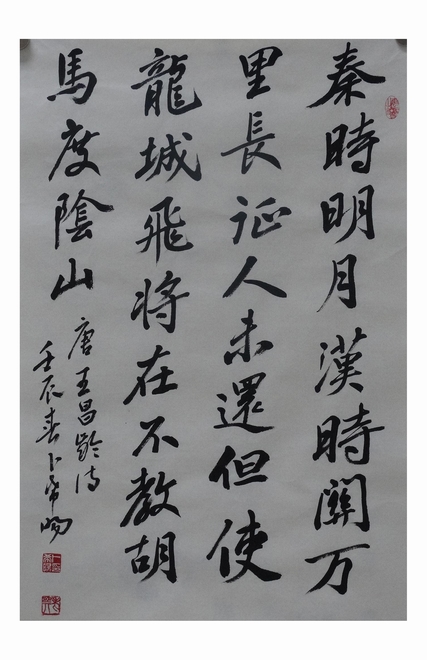 秦時明月漢時關万
里長征人未還但使
龍城飛將在不教胡
馬度陰山
唐王昌齡诗
壬辰春卜希旸